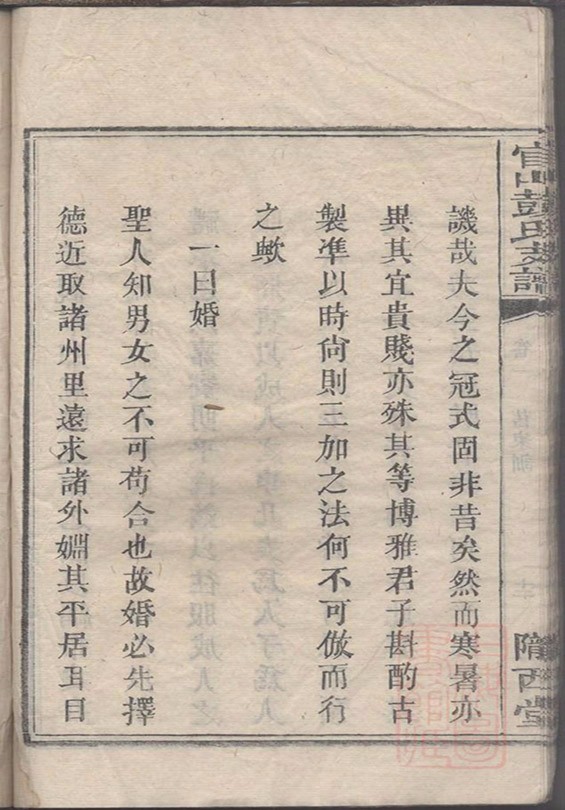 官山彭氏支譜
隴西堂
譏哉夫今之冠式固非昔矣然而寒暑亦
異其宜貴賤亦殊其等博雅君子斟酌古
製準以時尙則三加之法何不可倣而行
之歟
一曰婚
聖人知男女之不可苟合也故婚必先擇
德近取諸州里遠求諸外婣其平居耳目